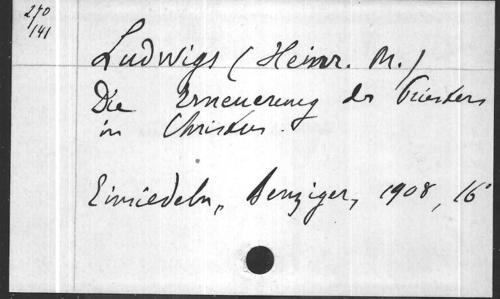 270
141
Ludwigs (Heinr. M.)
Die Erneuerung des Priesters
in Christus.
Einsiedeln, Benziger, 1908, 16°